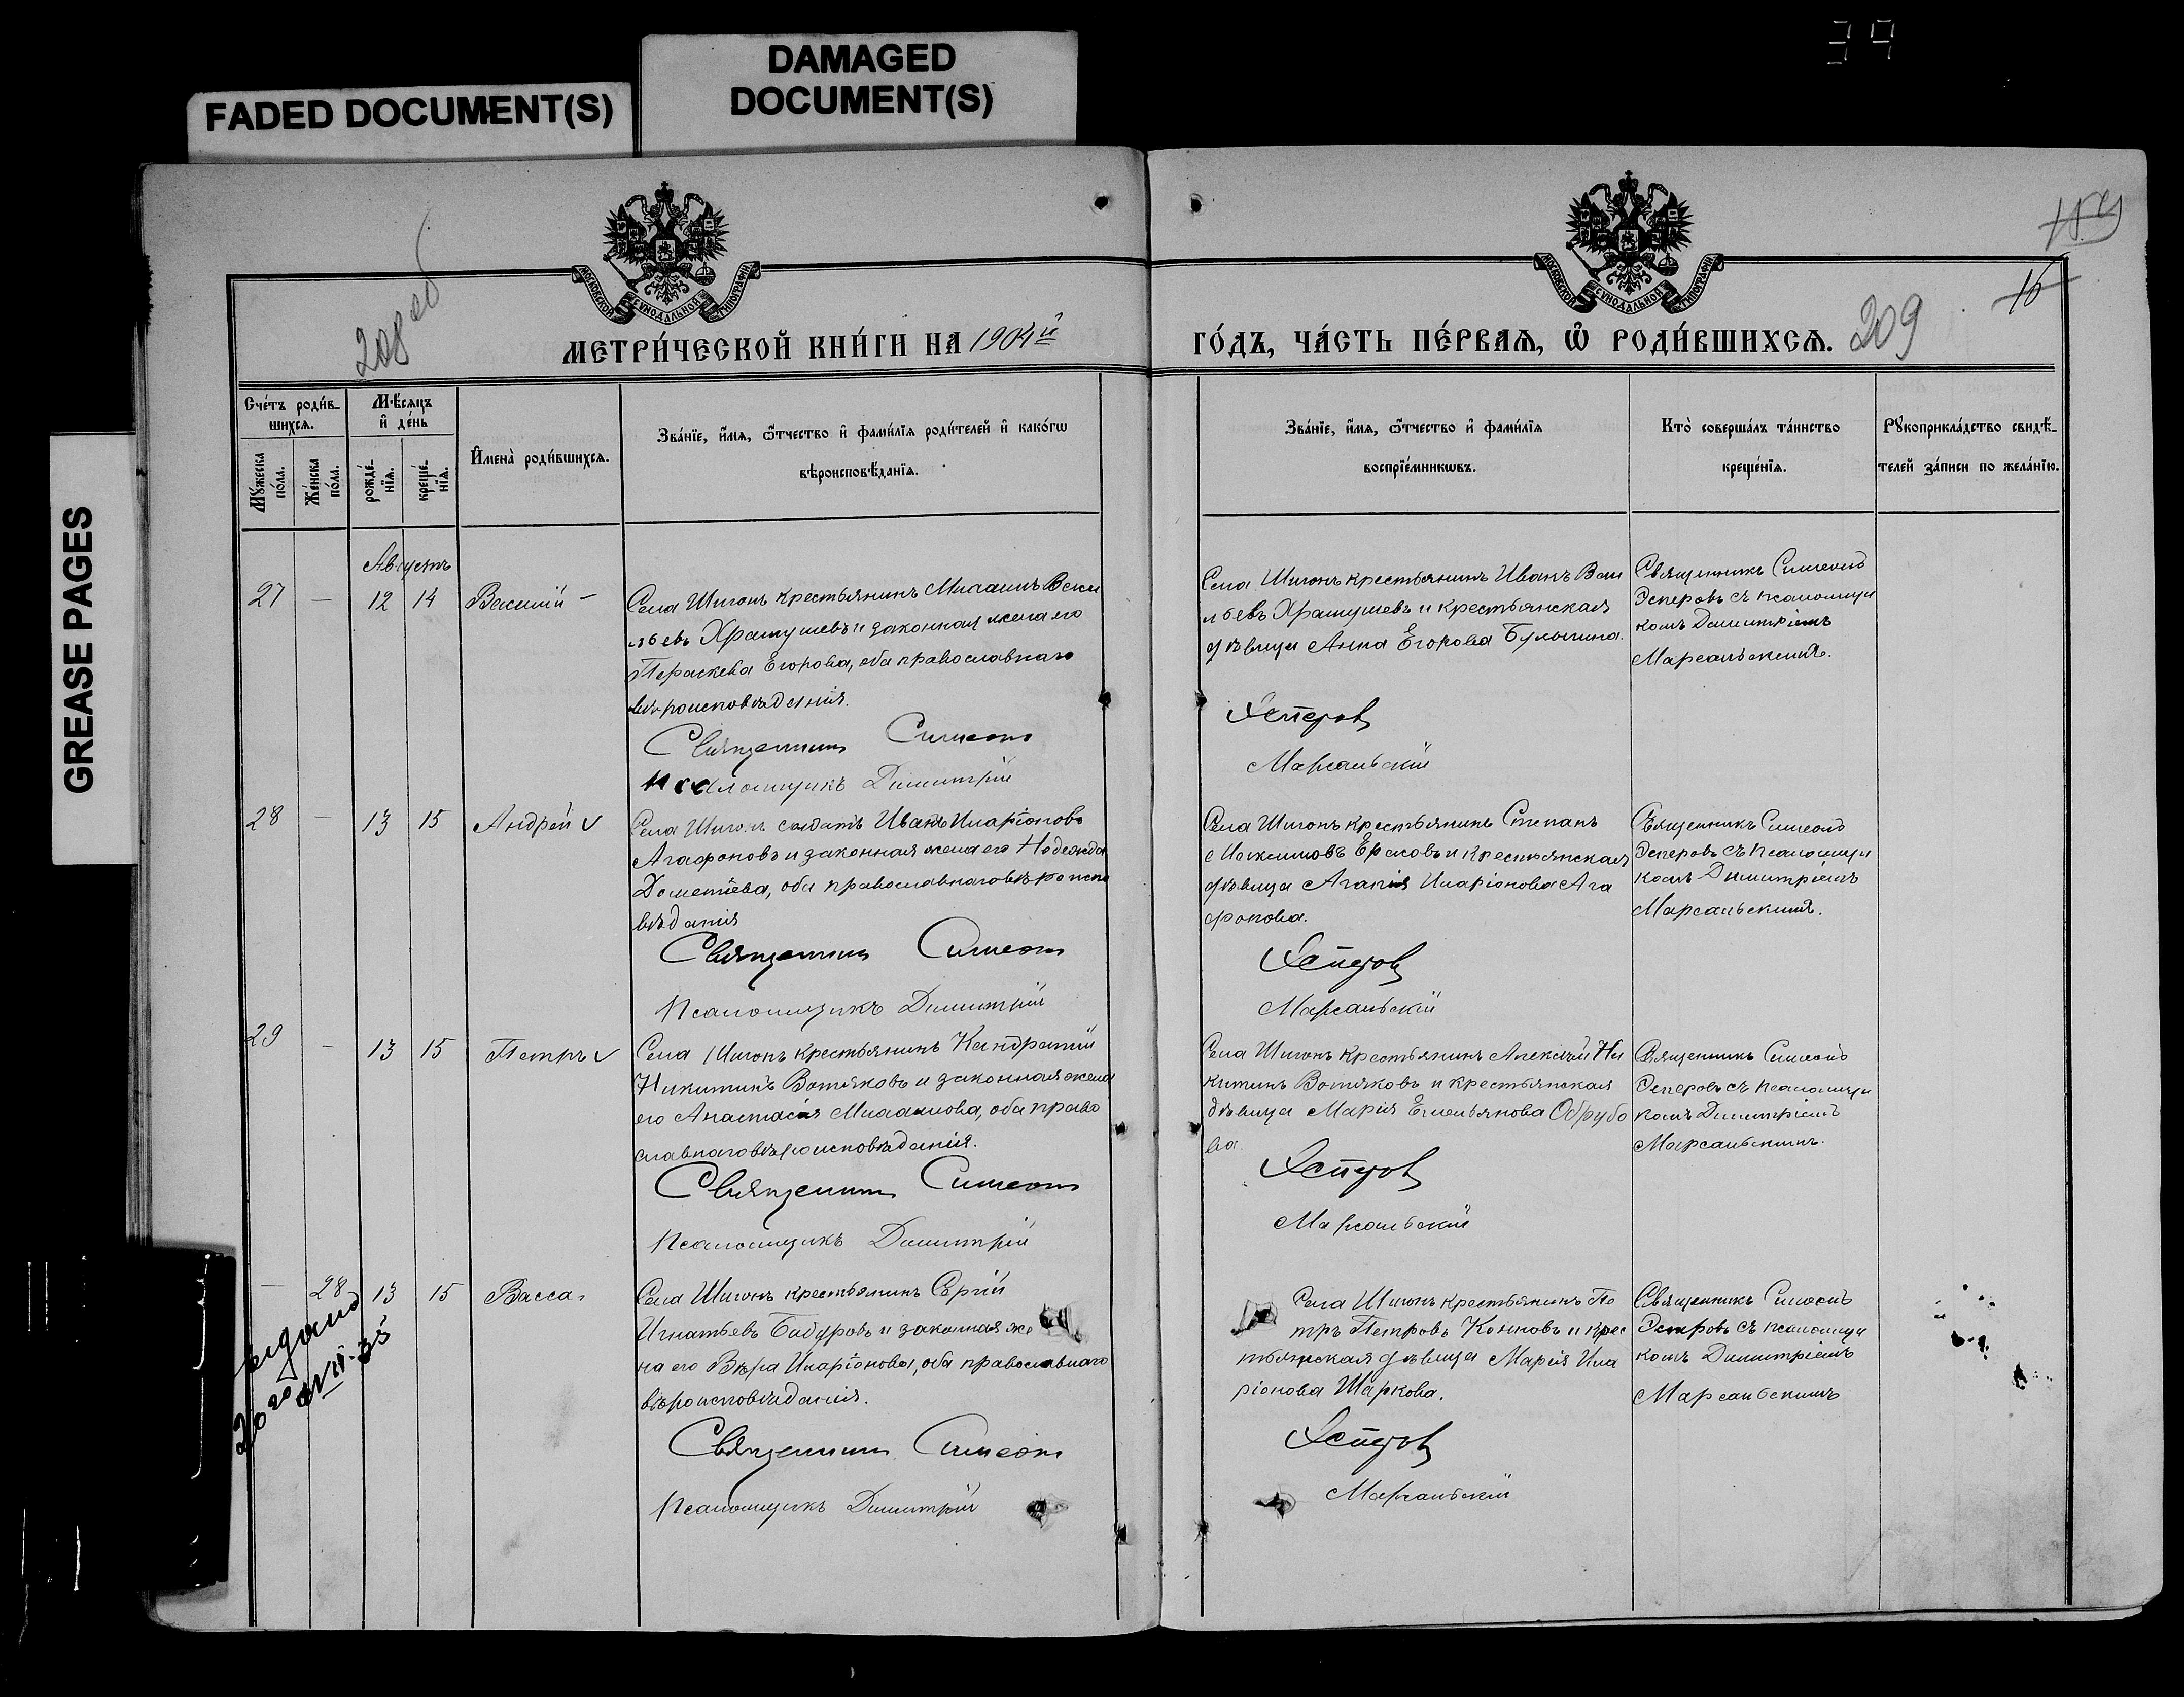 39
DAMAGED
DOCUMENT(S)
FADED DOCUMENT(S)
GREASE PAGES
208 об
209
16
МОСКОВСКОЙ СѴНОДАЛЬНОЙ ТИПОГРАФІИ
МОСКОВСКОЙ СѴНОДАЛЬНОЙ ТИПОГРАФІИ
МЕТРИ́ЧЕСКОЙ КНИ́ГИ НА 1904й
ГО́ДЪ, ЧА́СТЬ ПЕ́РВАѦ, Ѽ РОДИ́ВШИХСѦ.
Сче́тъ роди́в-
шихсѧ.
Мꙋ́жеска
по́ла.
Же́нска
по́ла.
Мѣ́сѧцъ
и҆ де́нь
рожде́-
нїѧ.
креще́-
нїѧ.
И҆мена̀ роди́вшихсѧ.
Зва́нїе, и҆́мѧ, ѻ҆́тчество и҆ фами́лїѧ роди́телей и҆ како́гѡ
вѣроисповѣ́данїѧ.
Зва́нїе, и҆́мѧ, ѻ҆́тчество и҆ фами́лїѧ
воспрїе́мникѡвъ.
Кто̀ соверша́лъ та́инство
креще́нїѧ.
Рꙋкоприкла́дство свидѣ́-
телей за́писи по жела́нїю.
Августъ
27 — 12 14 Василій —
Села Шигонъ крестьянинъ Михаилъ Васи
льевъ Храмушевъ и законная жена его
Параскева Егорова, оба православнаго
вѣроисповѣданія.
Священникъ Симеонъ
Псаломщикъ Димитрій
Села Шигонъ крестьянинъ Иванъ Васи
льевъ Храмушевъ и крестьянская
дѣвица Анна Егорова Булыгина.
Эсперовъ
Марсальскій
Священникъ Симеонъ
Эсперовъ съ псаломщи
комъ Димитріемъ
Марсальскимъ.
28 — 13 15 Андрей v
Села Шигонъ солдатъ Иванъ Иларіоновъ
Агафоновъ и законная жена его Надежда
Дометіева, оба православнаго вѣроиспо
вѣданія
Священникъ Симеонъ
Псаломщикъ Димитрій
Села Шигонъ крестьянинъ Степанъ
Максимовъ Ерасовъ и крестьянская
дѣвица Агапія Иларіонова Ага
фонова.
Эсперовъ
Марсальскій
Священникъ Симеонъ
Эсперовъ съ псаломщи
комъ Димитріемъ
Марсальскимъ.
29 — 13 15 Петръ v
Села Шигонъ крестьянинъ Кандратій
Никитинъ Вотяковъ и законная жена
его Анастасія Михаилова, оба право
славнаго вѣроисповѣданія.
Священникъ Симеонъ
Псаломщикъ Димитрій
Села Шигонъ крестьянинъ Алексѣй Ни
китинъ Вотяковъ и крестьянская
дѣвица Марія Емельянова Обрубо
ва.
Эсперовъ
Марсальскій
Священникъ Симеонъ
Эсперовъ съ псаломщи
комъ Димитріемъ
Марсальскимъ.
— 28 13 15 Васса.
выдано
Села Шигонъ крестьянинъ Сергій
Игнатьевъ Бабуровъ и законная же
на его Вѣра Иларіонова, оба православнаго
вѣроисповѣданія.
Священникъ Симеонъ
Псаломщикъ Димитрій
Села Шигонъ крестьянинъ Пе
тръ Петровъ Конновъ и крес
тьянская дѣвица Марія Ила
ріонова Шаркова.
Эсперовъ
Марсальскій
Священникъ Симеонъ
Эсперовъ съ псаломщи
комъ Димитріемъ
Марсальскимъ